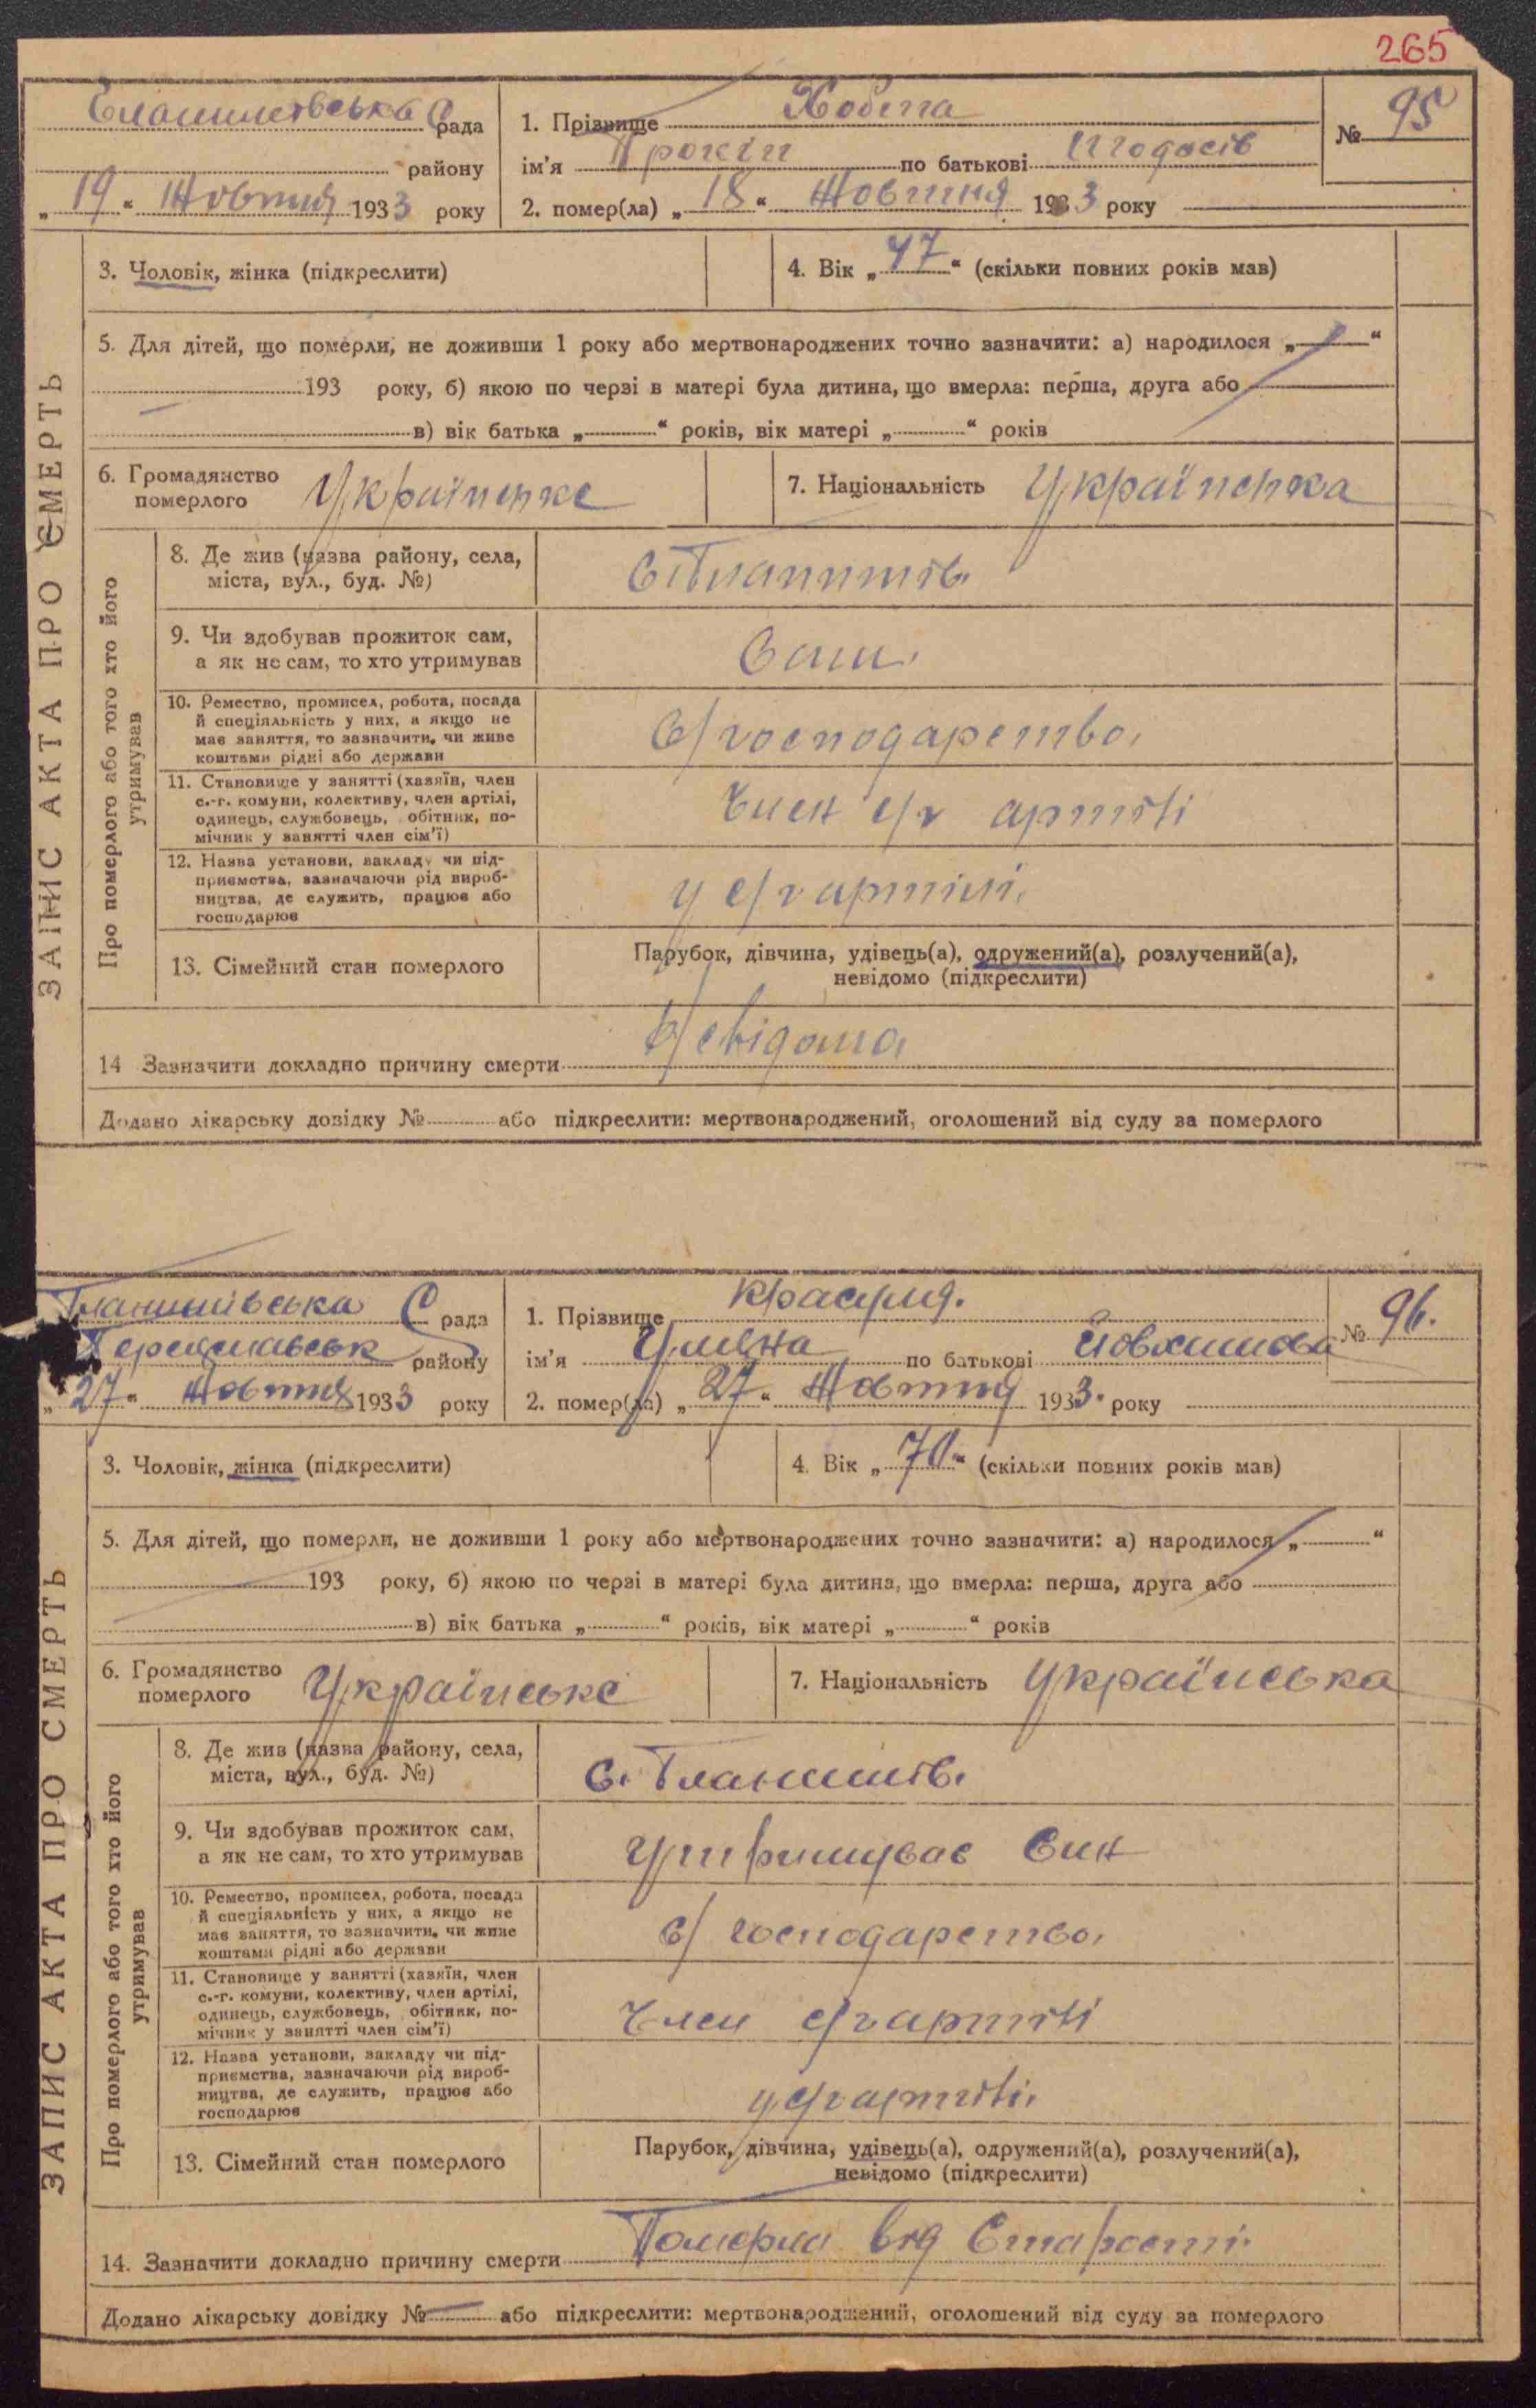 265
Гланишівська С рада
району
„ 19 “ Жовтня 1933 року
1. Прізвище Хобта
ім'я Прокіп по батькові
2. помер(ла) „ 18 “ Жовтня 1933 року
№ 95
ЗАПИС АКТА ПРО СМЕРТЬ
3. Чоловік, жінка (підкреслити)
4. Вік „ 47 “ (скільки повних років мав)
5. Для дітей, що померли, не доживши 1 року або мертвонароджених точно зазначити: а) народилося „ “
193 року, б) якою по черзі в матері була дитина, що вмерла: перша, друга або
в) вік батька „ “ років, вік матері „ “ років
6. Громадянство
померлого Українське
7. Національність Українська
Про померлого або того хто його
утримував
8. Де жив (назва району, села,
міста, вул., буд. №)
с. Гланишів.
9. Чи здобував прожиток сам,
а як не сам, то хто утримував
Сам.
10. Ремество, промисел, робота, посада
й спеціяльність у них, а якщо не
має заняття, то зазначити, чи живе
коштами рідні або держави
С/господарство.
11. Становище у занятті (хазяїн, член
с.-г. комуни, колективу, член артілі,
одинець, службовець, обітник, по-
мічник у занятті член сім'ї)
Член с/г артілі
12. Назва установи, закладу чи під-
приємства, зазначаючи рід вироб-
ництва, де служить, працює або
господарює
у с/г артілі.
13. Сімейний стан померлого
Парубок, дівчина, удівець(а), одружений(а), розлучений(а),
невідомо (підкреслити)
14 Зазначити докладно причину смерти
Додано лікарську довідку № або підкреслити: мертвонароджений, оголошений від суду за померлого
Гланишівська С рада
Переяславськ району
„ 27 “ Жовтня 1933 року
1. Прізвище
ім'я Уляна по батькові Йовхимова
2. помер(ла) „ 27 “ Жовтня 1933. року
№ 96.
ЗАПИС АКТА ПРО СМЕРТЬ
3. Чоловік, жінка (підкреслити)
4. Вік „ 70 “ (скільки повних років мав)
5. Для дітей, що померли, не доживши 1 року або мертвонароджених точно зазначити: а) народилося „ “
193 року, б) якою по черзі в матері була дитина, що вмерла: перша, друга або
в) вік батька „ “ років, вік матері „ “ років
6. Громадянство
померлого Українське
7. Національність Українська
Про померлого або того хто його
утримував
8. Де жив (назва району, села,
міста, вул., буд. №)
с. Гланишів.
9. Чи здобував прожиток сам,
а як не сам, то хто утримував
Утримував Син
10. Ремество, промисел, робота, посада
й спеціяльність у них, а якщо не
має заняття, то зазначити, чи живе
коштами рідні або держави
с/ господарство.
11. Становище у занятті (хазяїн, член
с.-г. комуни, колективу, член артілі,
одинець, службовець, обітник, по-
мічник у занятті член сім'ї)
Член с/г артілі
12. Назва установи, закладу чи під-
приємства, зазначаючи рід вироб-
ництва, де служить, працює або
господарює
у с/г артілі.
13. Сімейний стан померлого
Парубок, дівчина, удівець(а), одружений(а), розлучений(а),
невідомо (підкреслити)
14. Зазначити докладно причину смерти Померла від Старості.
Додано лікарську довідку № або підкреслити: мертвонароджений, оголошений від суду за померлого